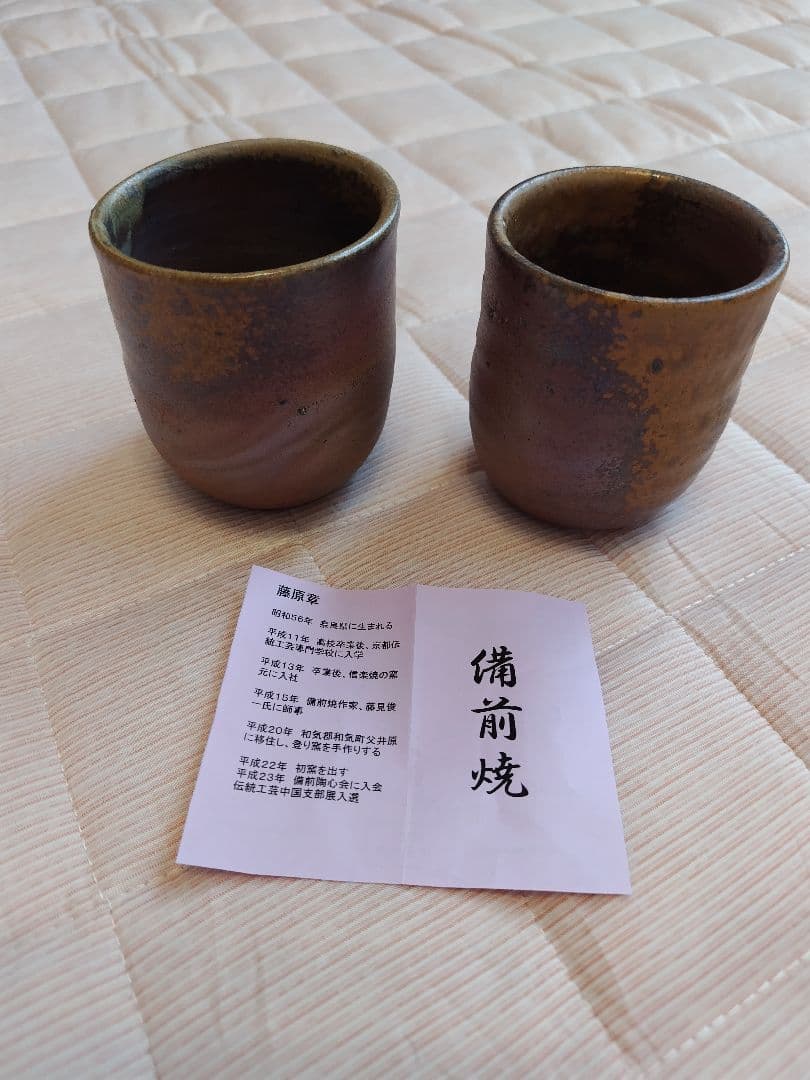 藤原
昭和56年 奈良県に生まれる
平成11年 高校卒業後、京都伝
統工芸専門学校に入学
平成13年 卒業後、信楽焼の窯
元に入社
平成15年 備前焼作家、藤見俊
一氏に師事
平成20年 和気郡和気町父井原
に移住し、登り窯を手作りする
平成22年 初窯を出す
平成23年 備前陶心会に入会
伝統工芸中国支部展入選
備前焼